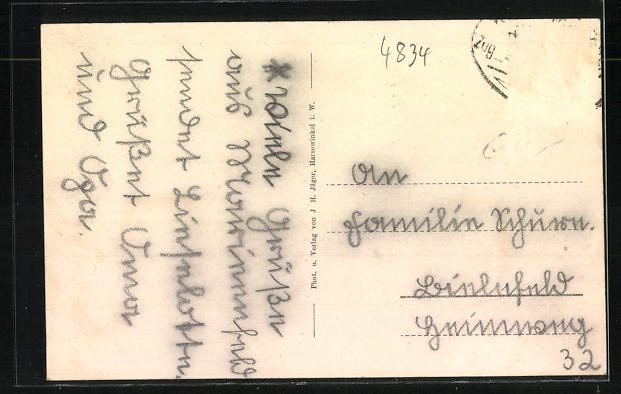 * Viele Grüße
aus Marienfeld
sendet Lieselotte.
Grüßet Oma
und Opa.
Phot. u. Verlag von J. H. Jäger, Harsewinkel i. W.
4834
Zug
An
Familie Schürn.
Bielefeld
Heimweg
32